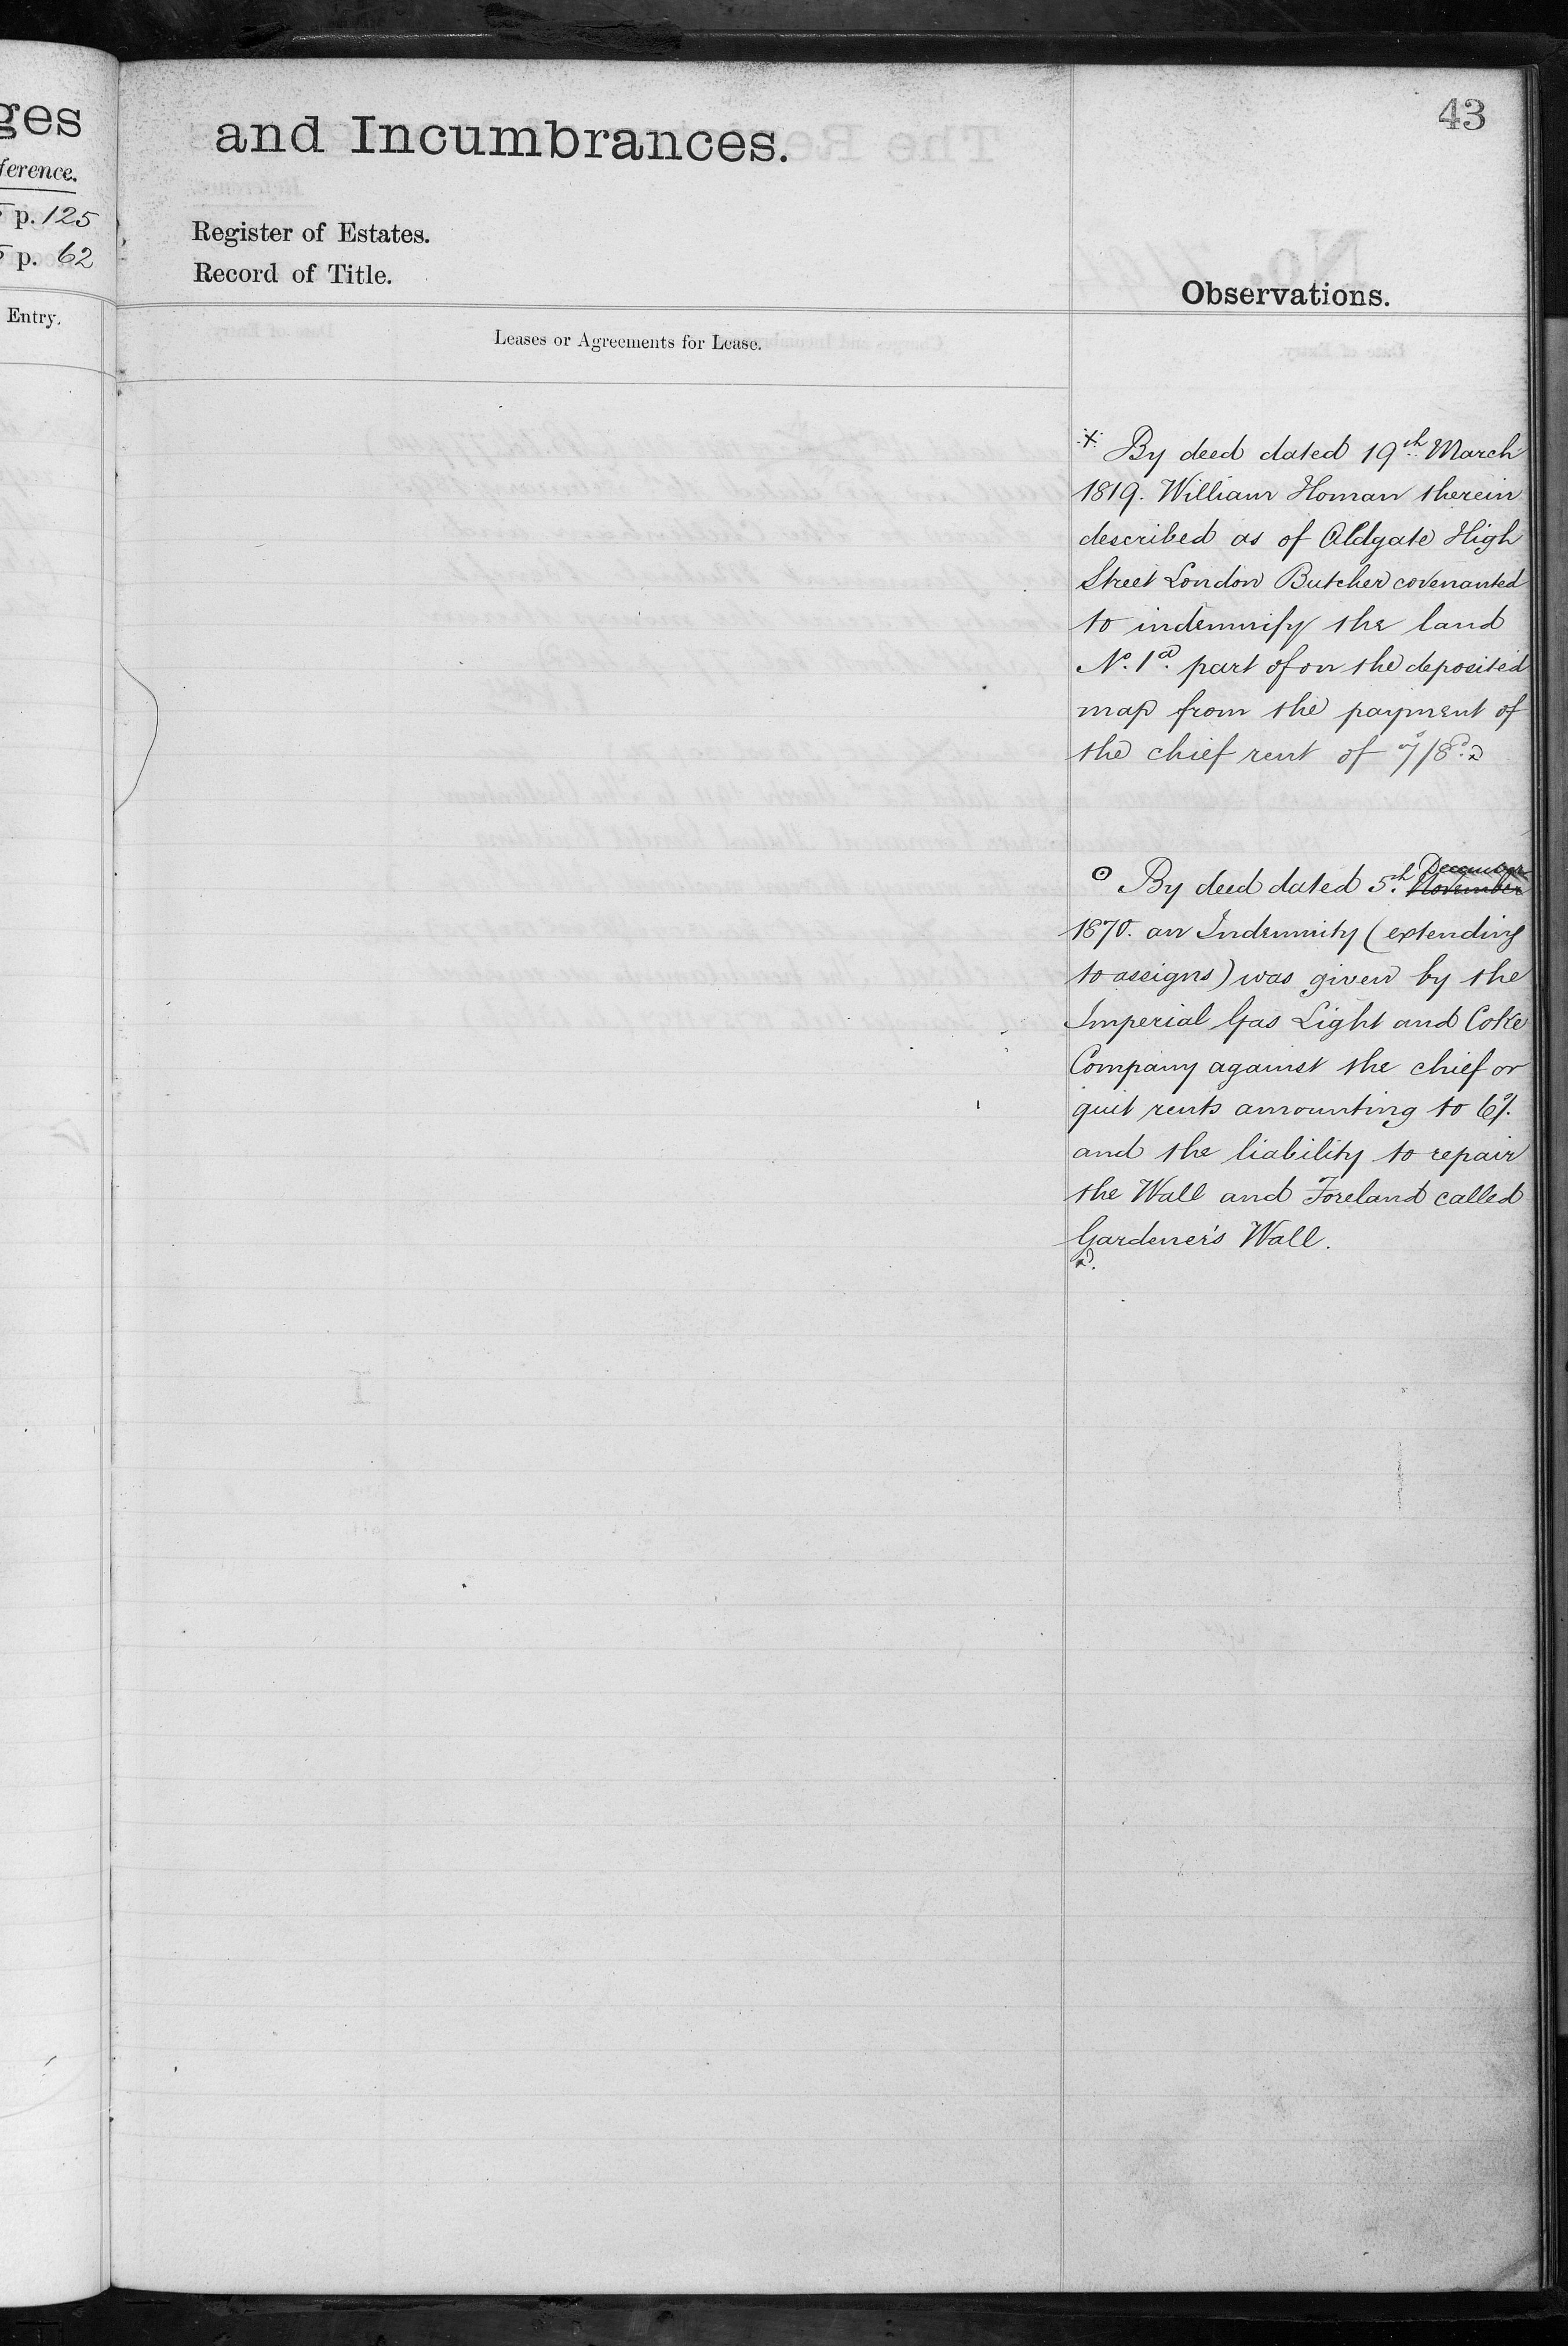 ges
ference.
p. 125
p. 62
Entry.
43
and Incumbrances.
Register of Estates.
Record of Title.
Observations.
Leases or Agreements for Lease.
By deed dated 19th March
1819. William Homan therein
described as of Aldgate High
Street London Butcher covenanted
to indemnify the land
No. 1a. part of on the deposited
map from the payment of
the chief rent of 7s/8d.
By deed dated 5th November December
1870. an Indemnity (extending
to assigns) was given by the
Imperial Gas Light and Coke
Company against the chief or
quit rents amounting to 6s/.
and the liability to repair
the Wall and Foreland called
Gardener's Wall.